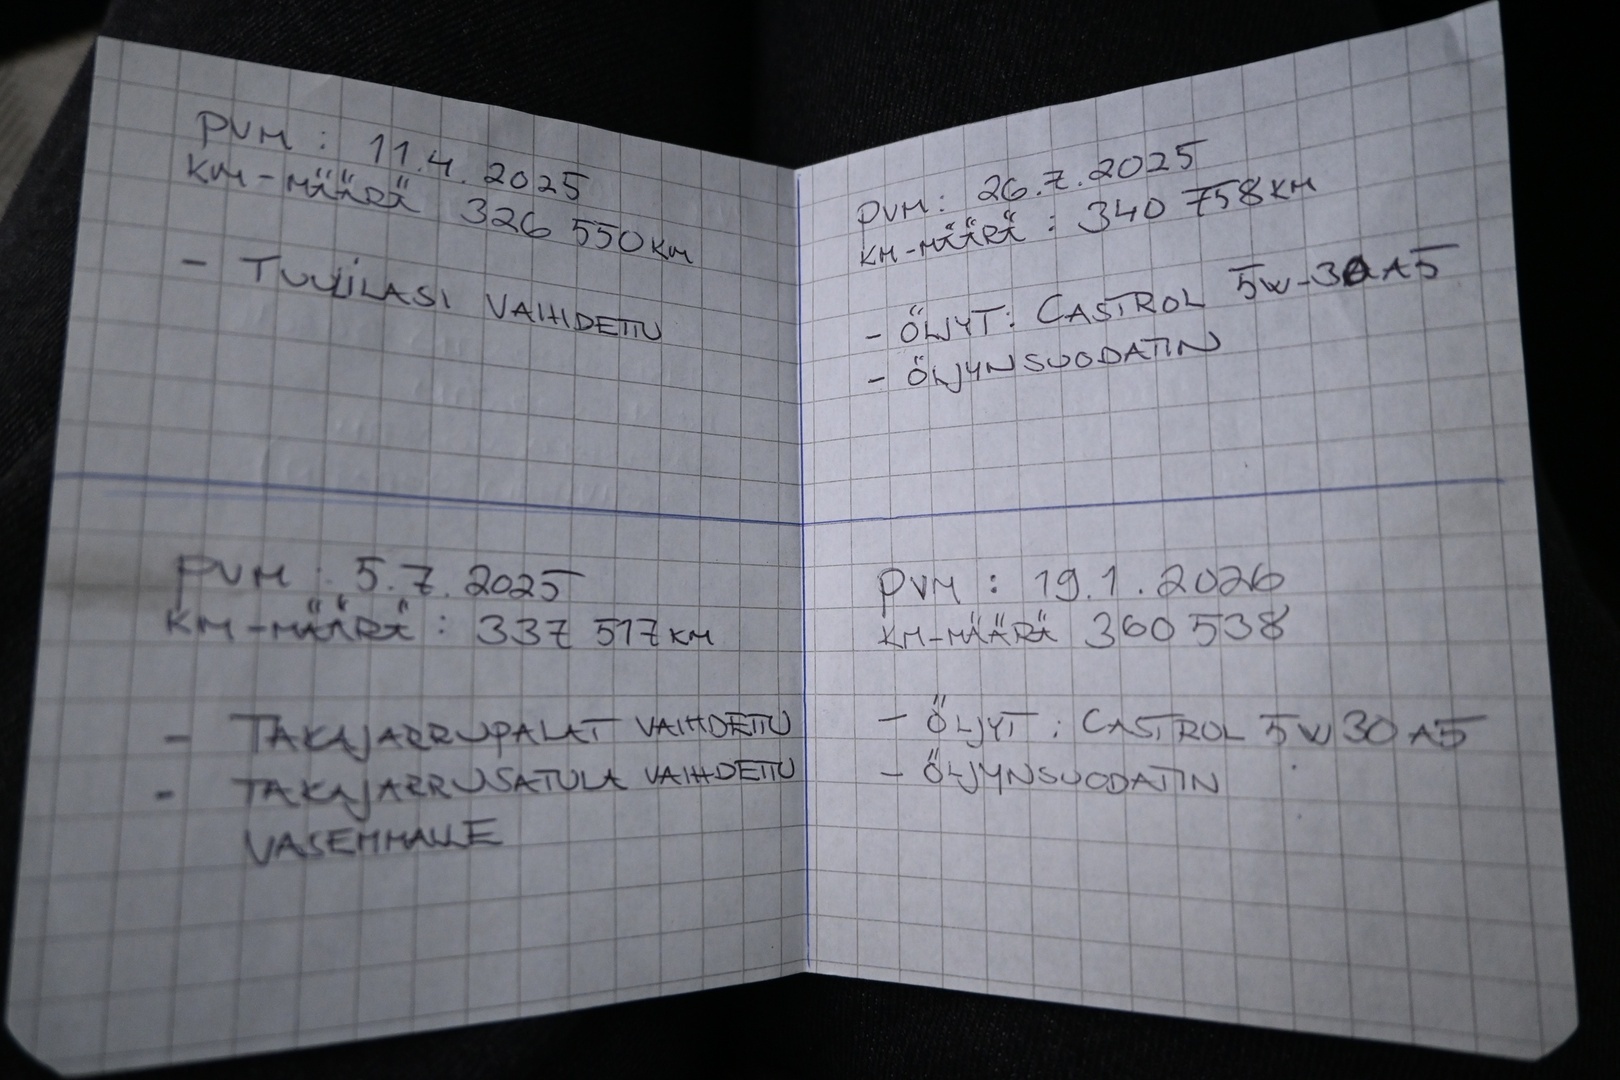 PVM : 11.4.2025
KM-MÄÄRÄ 326 550 KM
- TUULILASI VAIHDETTU
PVM : 5.7.2025
KM-MÄÄRÄ : 337 517 KM
- TAKAJARRUPALAT VAIHDETTU
- TAKAJARRUSATULA VAIHDETTU
VASEMMALLE
PVM : 26.7.2025
KM-MÄÄRÄ : 340 758 KM
- ÖLJYT : CASTROL 5W-30 A5
- ÖLJYNSUODATIN
PVM : 19.1.2026
KM-MÄÄRÄ 360 538
- ÖLJYT : CASTROL 5W30 A5
- ÖLJYNSUODATIN